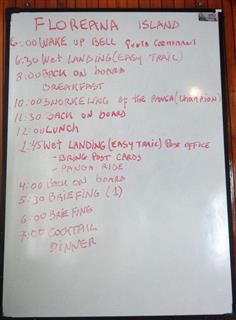 FLOREANA ISLAND
6:00 WAKE UP BELL PUNTA CORMORANT
6:30 WET LANDING (EASY TRAIL)
8:00 BACK ON BOARD
BREAKFAST
10:00 SNORKELING OF THE PANGA (CHAMPION)
11:30 BACK ON BOARD
12:00 LUNCH
1:45 WET LANDING (EASY TRAIL) POST OFFICE
- BRING POST CARDS
- PANGA RIDE
4:00 BACK ON BOARD
5:30 BRIEFING (1)
6:00 BRIEFING
7:00 COCKTAIL
DINNER